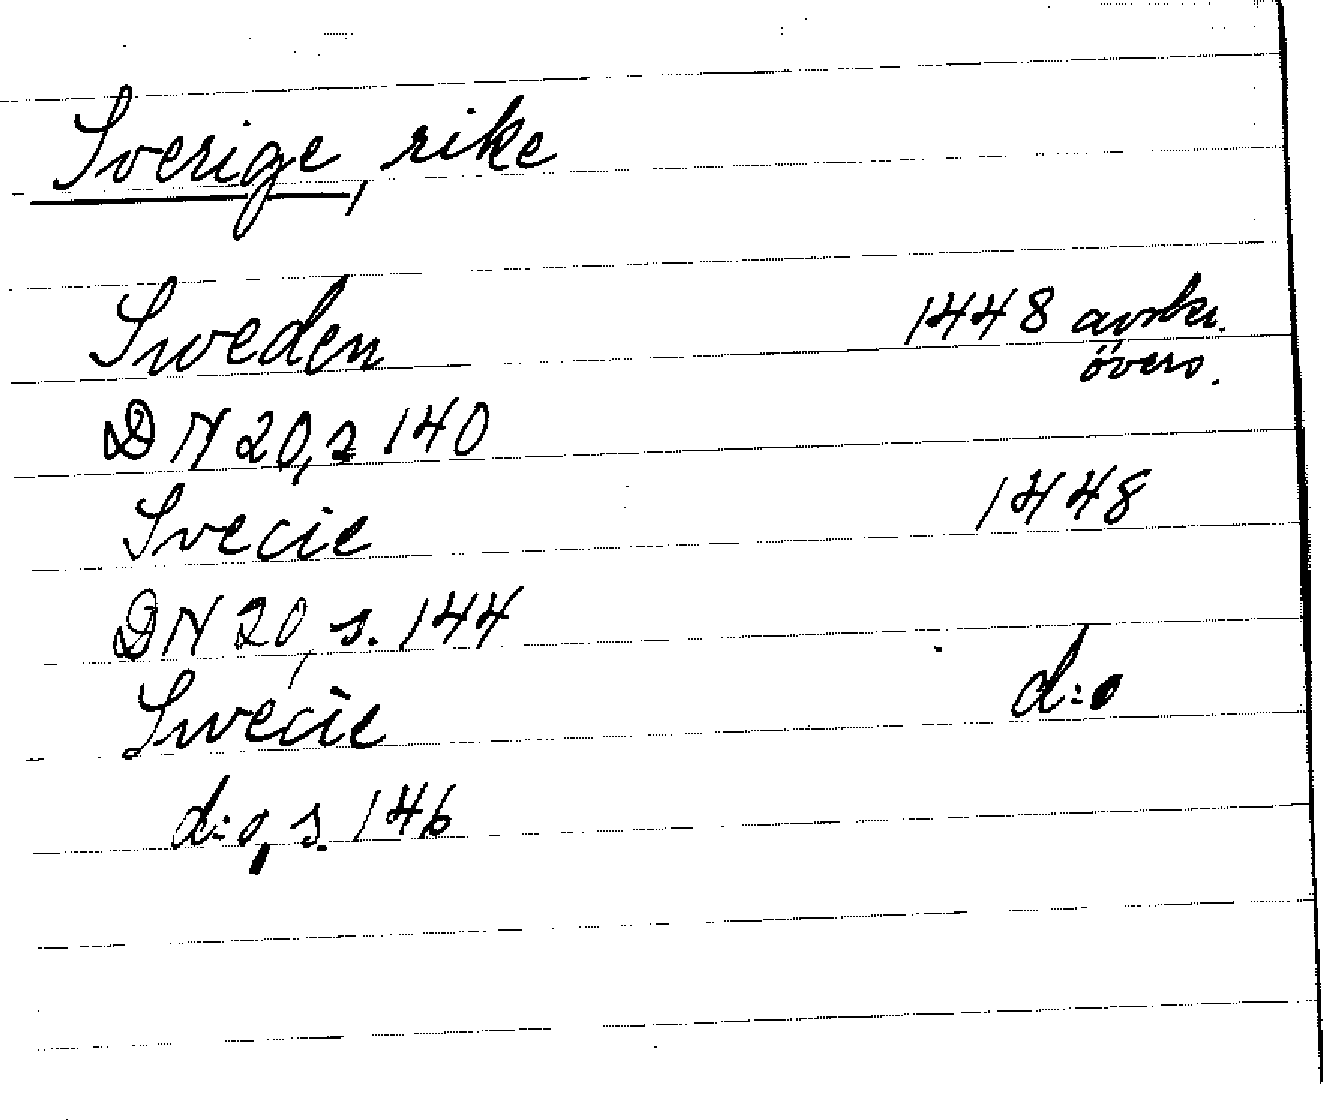 Sverige, rike
Sweden 1448 avskr.
övers.
DN 20, s 140
Svecie 1448
DN 20, s. 144
Swecie d:o
d:o, s. 146